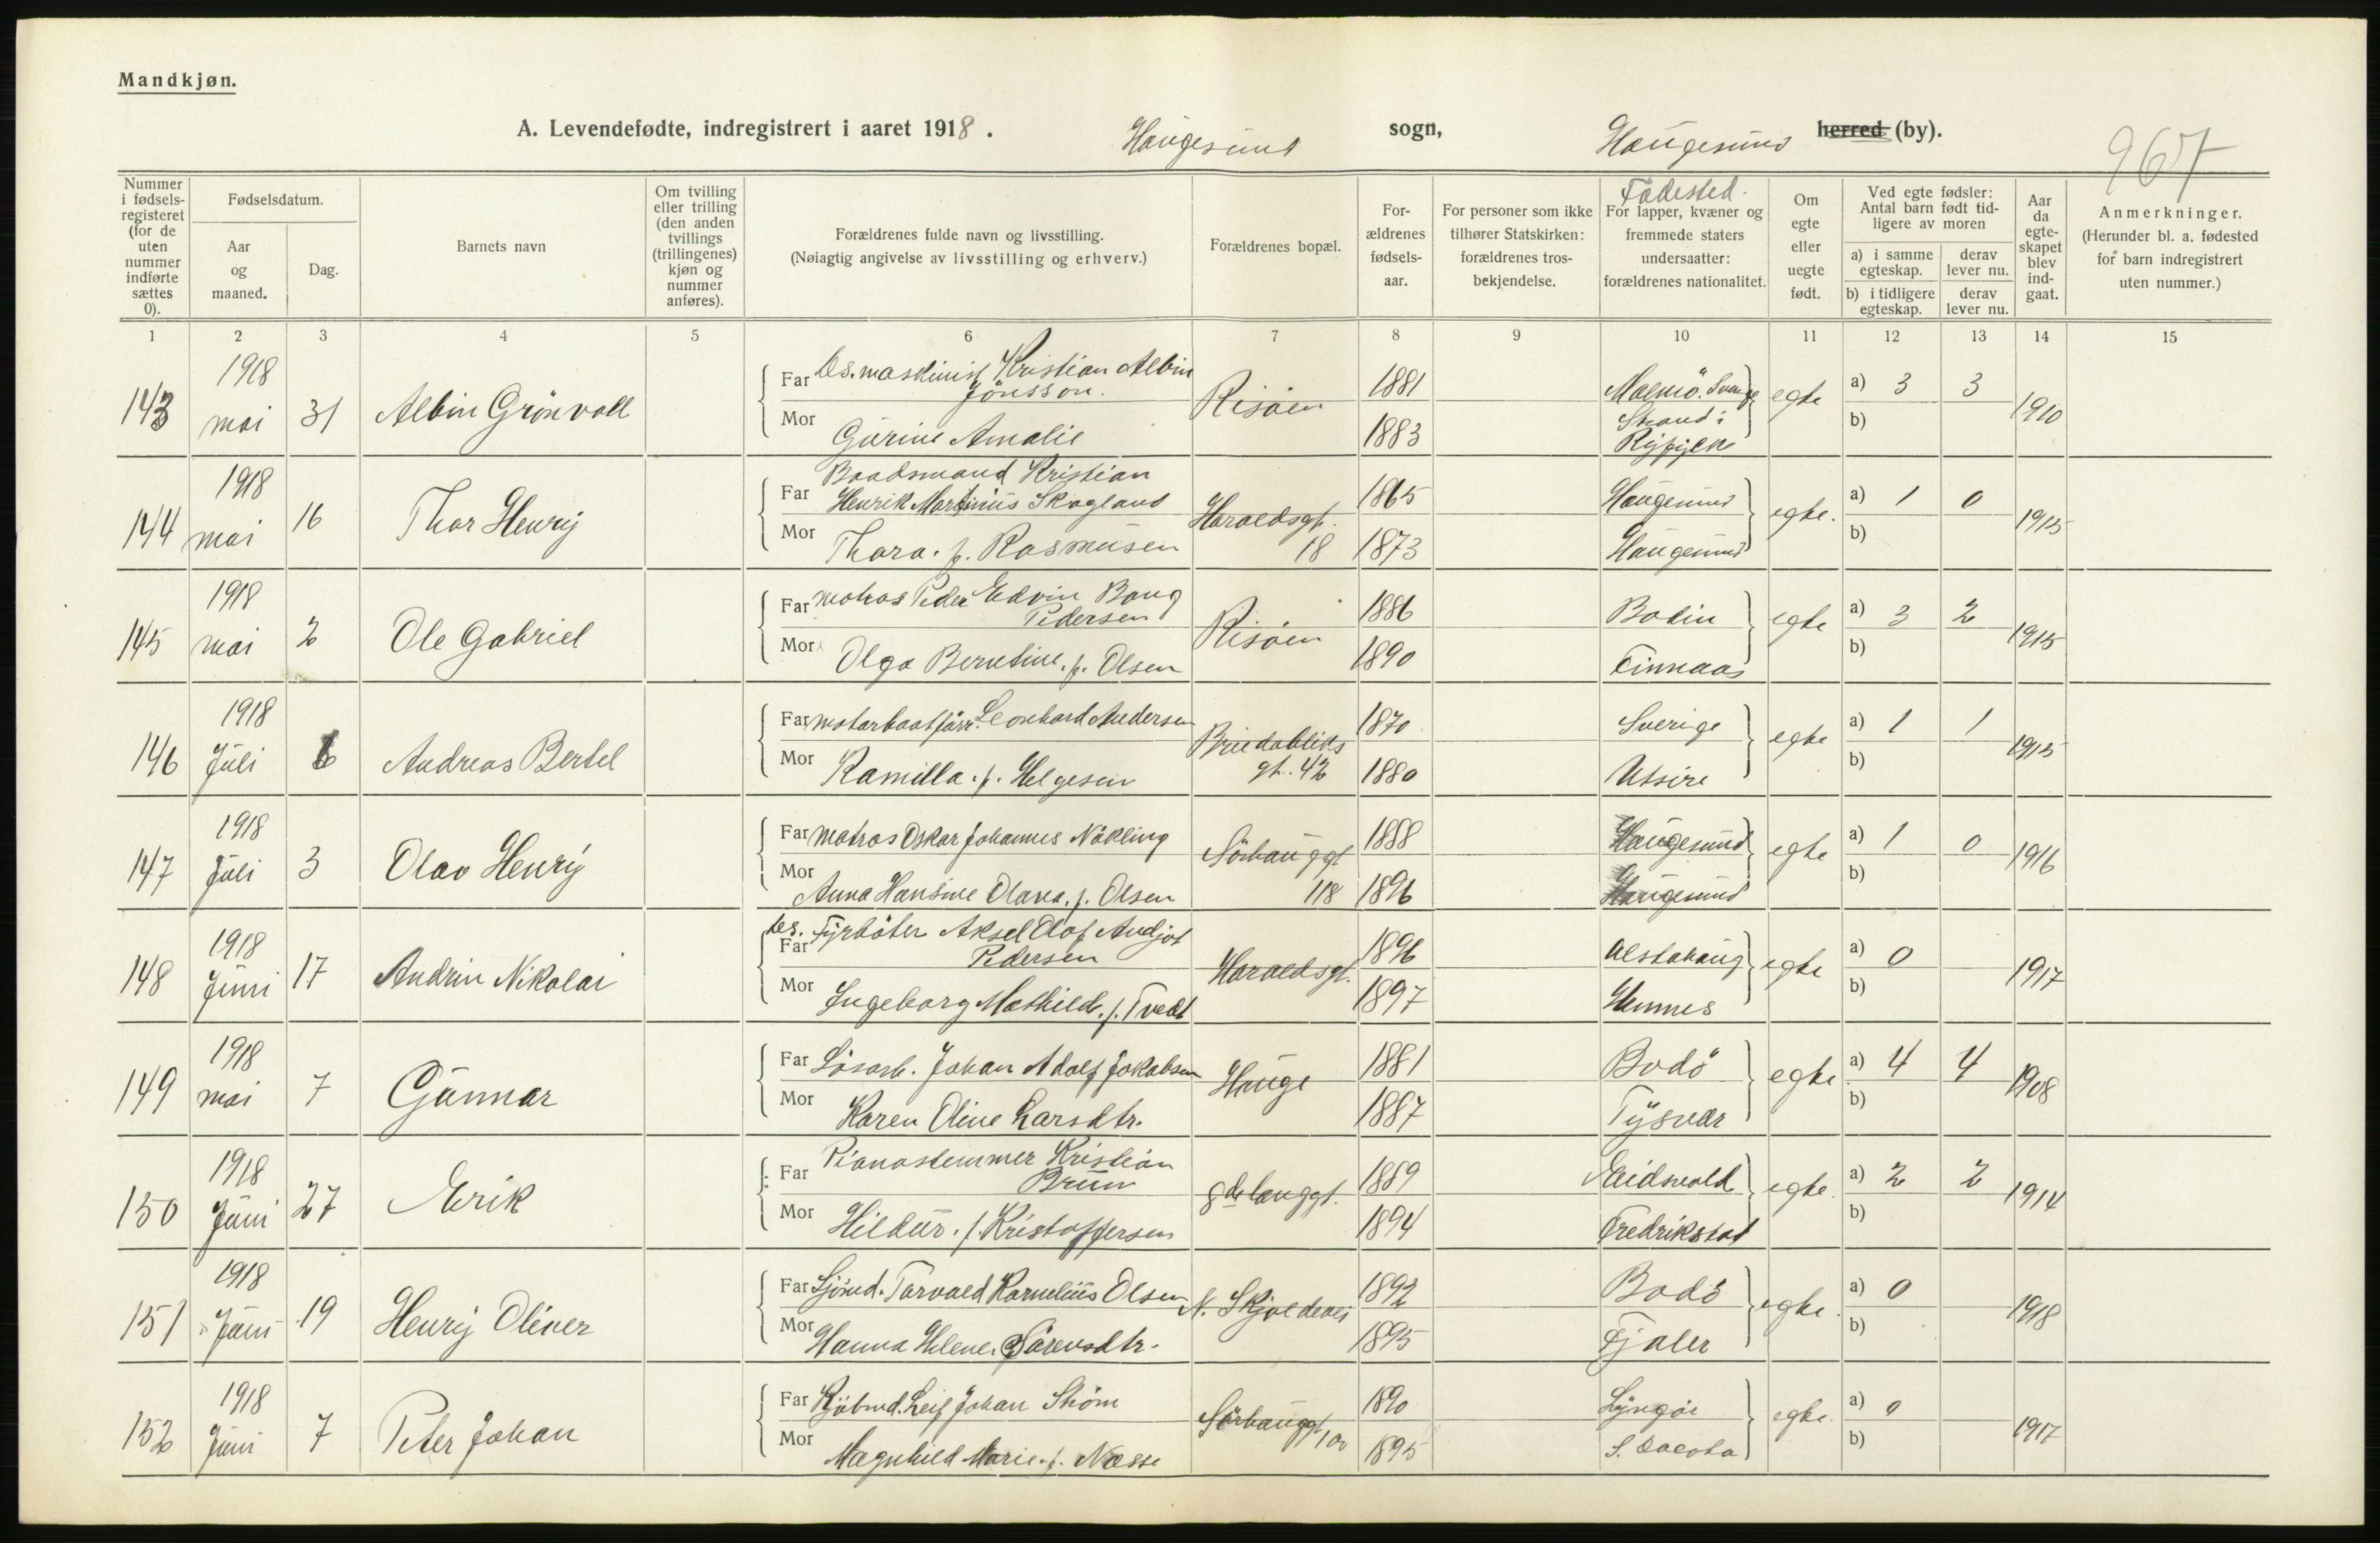 Mandkjøn.
A. Levendefødte, indregistrert i aaret 1918. Haugesund sogn, Haugesund herred (by).
967
Nummer i fødsels-registeret (for de uten nummer indførte sættes 0).
Fødselsdatum.
Aar og maaned.
Dag.
Barnets navn
Om tvilling eller trilling (den anden tvillings (trillingenes) kjøn og nummer anføres).
Forældrenes fulde navn og livsstilling.
(Nøiagtig angivelse av livsstilling og erhverv.)
Forældrenes bopæl.
For-ældrenes fødsels-aar.
For personer som ikke tilhører Statskirken: forældrenes tros-bekjendelse.
Fødested.
For lapper, kvæner og fremmede staters undersaatter: forældrenes nationalitet.
Om egte eller uegte født.
Ved egte fødsler: Antal barn født tid-ligere av moren
a) i samme egteskap.
derav lever nu.
b) i tidligere egteskap.
derav lever nu.
Aar da egte-skapet blev ind-gaat.
Anmerkninger.
(Herunder bl. a. fødested for barn indregistrert uten nummer.)
1 2 3 4 5 6 7 8 9 10 11 12 13 14 15
143 1918 mai 31 Albin Grönvoll
Far Os. maskinist Kristian Albin Jönsson. Risöen 1881 Malmö. Sverige egte a) 3 3 1910
Mor Gurine Amalie 1883 Strand i Ryfylke b)
144 1918 mai 16 Thor Henry
Far Baadsmand Kristian Henrik Martinius Skogland Haraldsgt. 18 1865 Haugesund egte. a) 1 0 1915
Mor Thora. f. Rasmusen 1873 Haugesund b)
145 1918 mai 2 Ole Gabriel
Far matros Peder Edvin Baug Pedersen Risöen 1886 Bodin egte a) 3 2 1915
Mor Olga Berntine. f. Olsen 1890 Finnaas b)
146 1918 Juli 6 Andreas Bertel
Far motorbaatförer Leonhard Andersen Briedabliks gt. 42 1870 Sverige egte a) 1 1 1915
Mor Kamilla. f. Helgesen 1880 Utsire b)
147 1918 Juli 3 Olav Henry
Far Matros Oskar Johannes Nökling Sörhauggt 118 1888 Haugesund egte a) 1 0 1916
Mor Anna Hansine Olava. f. Olsen 1896 Haugesund b)
148 1918 Juni 17 Andrin Nikolai
Far Os. Fyrböter Aksel Olof Andjot Pedersen Haraldsgt. 1896 Alstahaug egte a) 0 1917
Mor Ingeborg Mathilde. f. Tvedt 1897 Hemnes b)
149 1918 mai 7 Gunnar
Far Lösarb. Johan Adolf Jakobsen Hauge 1881 Bodö egte a) 4 4 1908
Mor Karen Oline Larsdtr. 1887 Tysvær b)
150 1918 Juni 27 Erik
Far Pianostemmer Kristian Brun 8de langgt. 1889 Eidsvold egte. a) 2 2 1914
Mor Hildur. f. Kristoffersen 1894 Fredrikstad b)
151 1918 Juni 19 Henry Oliver
Far Sjömd. Torvald Kornelius Olsen N. Skjoldevei 1892 Bodö egte. a) 0 1918
Mor Hanna Helene Sörensdtr. 1895 Fjaler b)
152 1918 Juni 7 Peter Johan
Far Kjöbmd. Leif Johan Ström Sörhauggt 100 1890 Lyngöe egte. a) 0 1917
Mor Magnhild Marie. f. Næsse 1895 S. Dacota b)